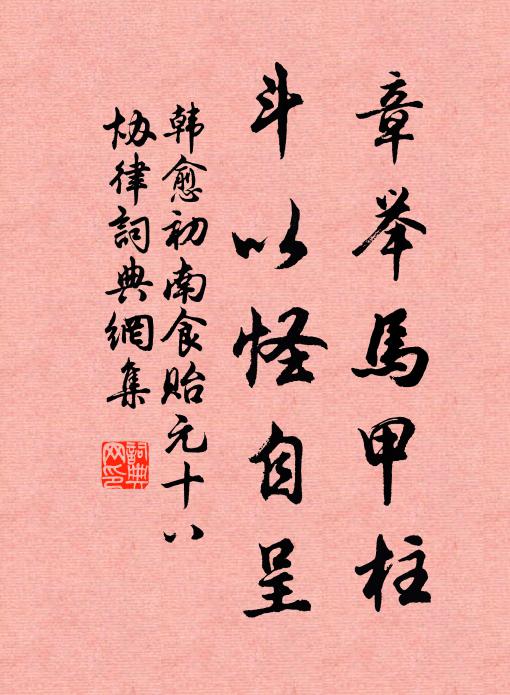 章举馬甲柱
斗以怪自呈
韩愈初南食贻元十八
协律詞典網集
詞典
网印